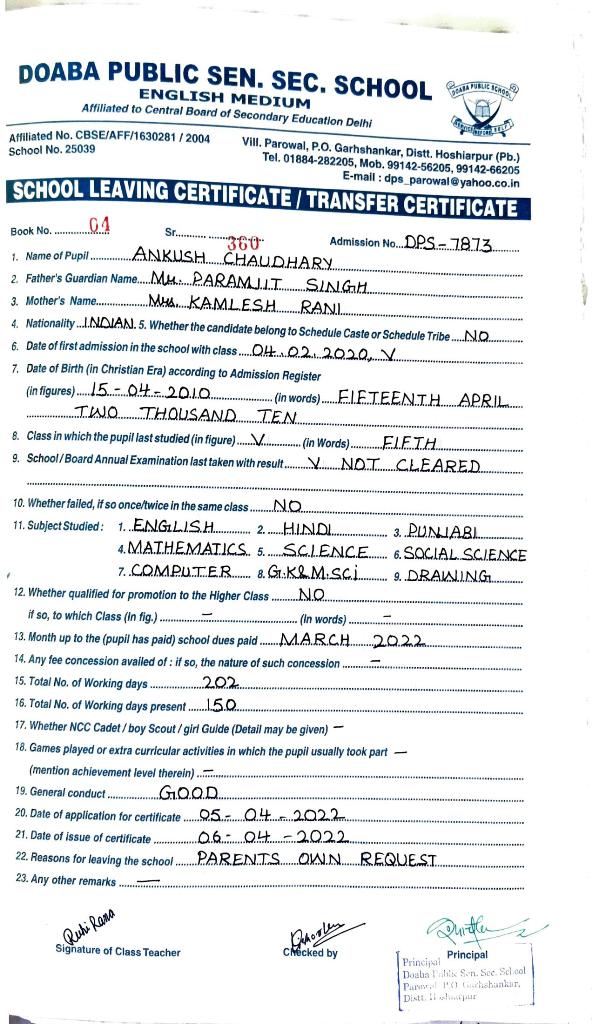 DOABA PUBLIC SEN. SEC. SCHOOL
ENGLISH MEDIUM
Affiliated to Central Board of Secondary Education Delhi
DOABA PUBLIC SCHOOL
Affiliated No. CBSE/AFF/1630281 / 2004
School No. 25039
Vill. Parowal, P.O. Garhshankar, Distt. Hoshiarpur (Pb.)
Tel. 01884-282205, Mob. 99142-56205, 99142-66205
E-mail : dps_parowal@yahoo.co.in
SCHOOL LEAVING CERTIFICATE / TRANSFER CERTIFICATE
Book No. 04 Sr. 360 Admission No. DPS-7873
1. Name of Pupil ANKUSH CHAUDHARY
2. Father's Guardian Name Mr. PARAMJIT SINGH
3. Mother's Name Mrs. KAMLESH RANI
4. Nationality INDIAN. 5. Whether the candidate belong to Schedule Caste or Schedule Tribe NO
6. Date of first admission in the school with class 04.02.2020, V
7. Date of Birth (in Christian Era) according to Admission Register
(in figures) 15-04-2010 (in words) FIFTEENTH APRIL
TWO THOUSAND TEN
8. Class in which the pupil last studied (in figure) V (in Words) FIFTH
9. School / Board Annual Examination last taken with result V NOT CLEARED
10. Whether failed, if so once/twice in the same class NO
11. Subject Studied : 1. ENGLISH 2. HINDI 3. PUNJABI
4. MATHEMATICS 5. SCIENCE 6. SOCIAL SCIENCE
7. COMPUTER 8. G.K&M.SCi 9. DRAWING
12. Whether qualified for promotion to the Higher Class NO
if so, to which Class (In fig.) – (In words) –
13. Month up to the (pupil has paid) school dues paid MARCH 2022
14. Any fee concession availed of : if so, the nature of such concession –
15. Total No. of Working days 202
16. Total No. of Working days present 150
17. Whether NCC Cadet / boy Scout / girl Guide (Detail may be given) –
18. Games played or extra curricular activities in which the pupil usually took part –
(mention achievement level therein) –
19. General conduct GOOD
20. Date of application for certificate 05-04-2022
21. Date of issue of certificate 06-04-2022
22. Reasons for leaving the school PARENTS OWN REQUEST
23. Any other remarks —
Ruhi Rana
Signature of Class Teacher Checked by Principal
Principal
Doaba Public Sen. Sec. School
Parowal P.O. Garhshankar,
Distt. Hoshiarpur